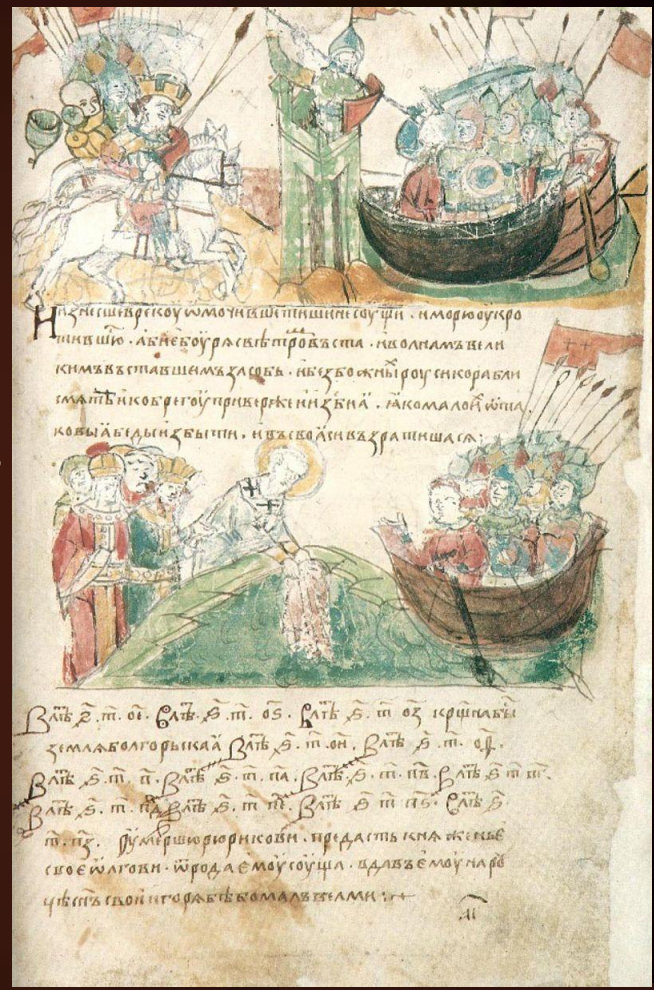 низнесше в рєкоу омочивше тишинѣ соущи · и морю оукро
тившю · абиє боурѧ с вѣтромъ въста · и волнамъ вели
кимъ въставшемъ засобь · и безбожныⷯ роуси корабли
смѧте и к берегоу приверже и изби ѧ · ꙗко мало иⷯ ѿ та
ковыѧ бѣды избыти · и въ своꙗси възратишасѧ :
В лⷮѣ ҂ѕ · т · ое · В лⷮѣ ҂ѕ · т · оѕ · В лⷮѣ ҂ѕ · т · оз крщна бы
землѧ болгорьскаꙗ В лⷮѣ ҂ѕ · т · ои · В лⷮѣ ҂ѕ · т · оѳ ·
В лⷮѣ ҂ѕ · т · п · В лⷮѣ ҂ѕ · т · па · В лⷮѣ ҂ѕ · т · пв · В лⷮѣ ҂ѕ · т · пг ·
В лⷮѣ ҂ѕ · т · пд · В лⷮѣ ҂ѕ · т · пе · В лⷮѣ ҂ѕ · т · пѕ · В лⷮѣ ҂ѕ ·
т · пз · Оумершю рюрикови · предасть кнѧженьє
своє ѡлгови · ѿ рода ємоу соуща · вдавъ ємоу на роу
цѣ снъ свои игорѧ бѣ бо малъ велми :